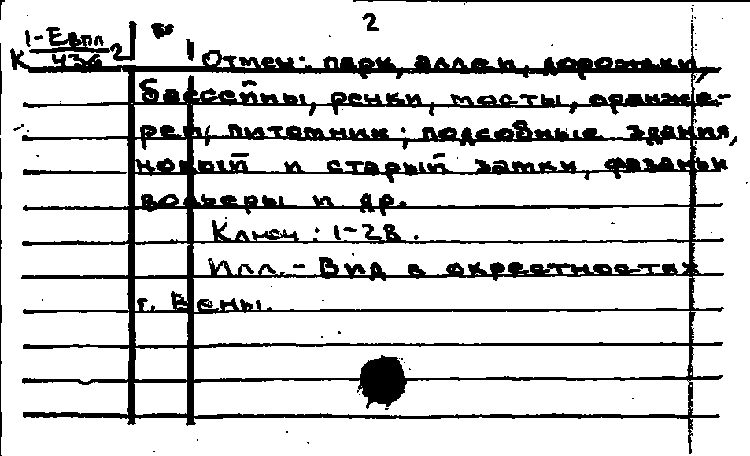 2
1-Евпл
К 436 2
Отмеч: парк, аллеи, дорожки,
бассейны, речки, мосты, оранже-
реи, питомник; подсобные здания,
новый и старый замки, фазаньи
вольеры и др.
Ключ: 1-28.
Илл. - Вид в окрестностях
г. Вены.